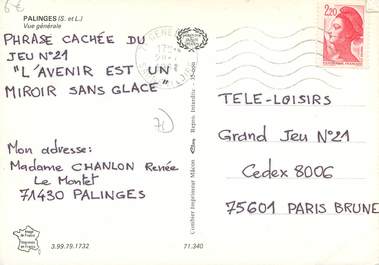 6€
PALINGES (S. et L.)
Vue générale
PHRASE CACHÉE DU
JEU N°21
"L'AVENIR EST UN
MIROIR SANS GLACE"
Mon adresse:
Madame CHANLON Renée
Le Montet
71430 PALINGES
3.99.79.1732
71.340
Combier Imprimeur Mâcon
Repro. Interdite
2,20
TELE-LOISIRS
Grand Jeu N°21
Cedex 8006
75601 PARIS BRUNE